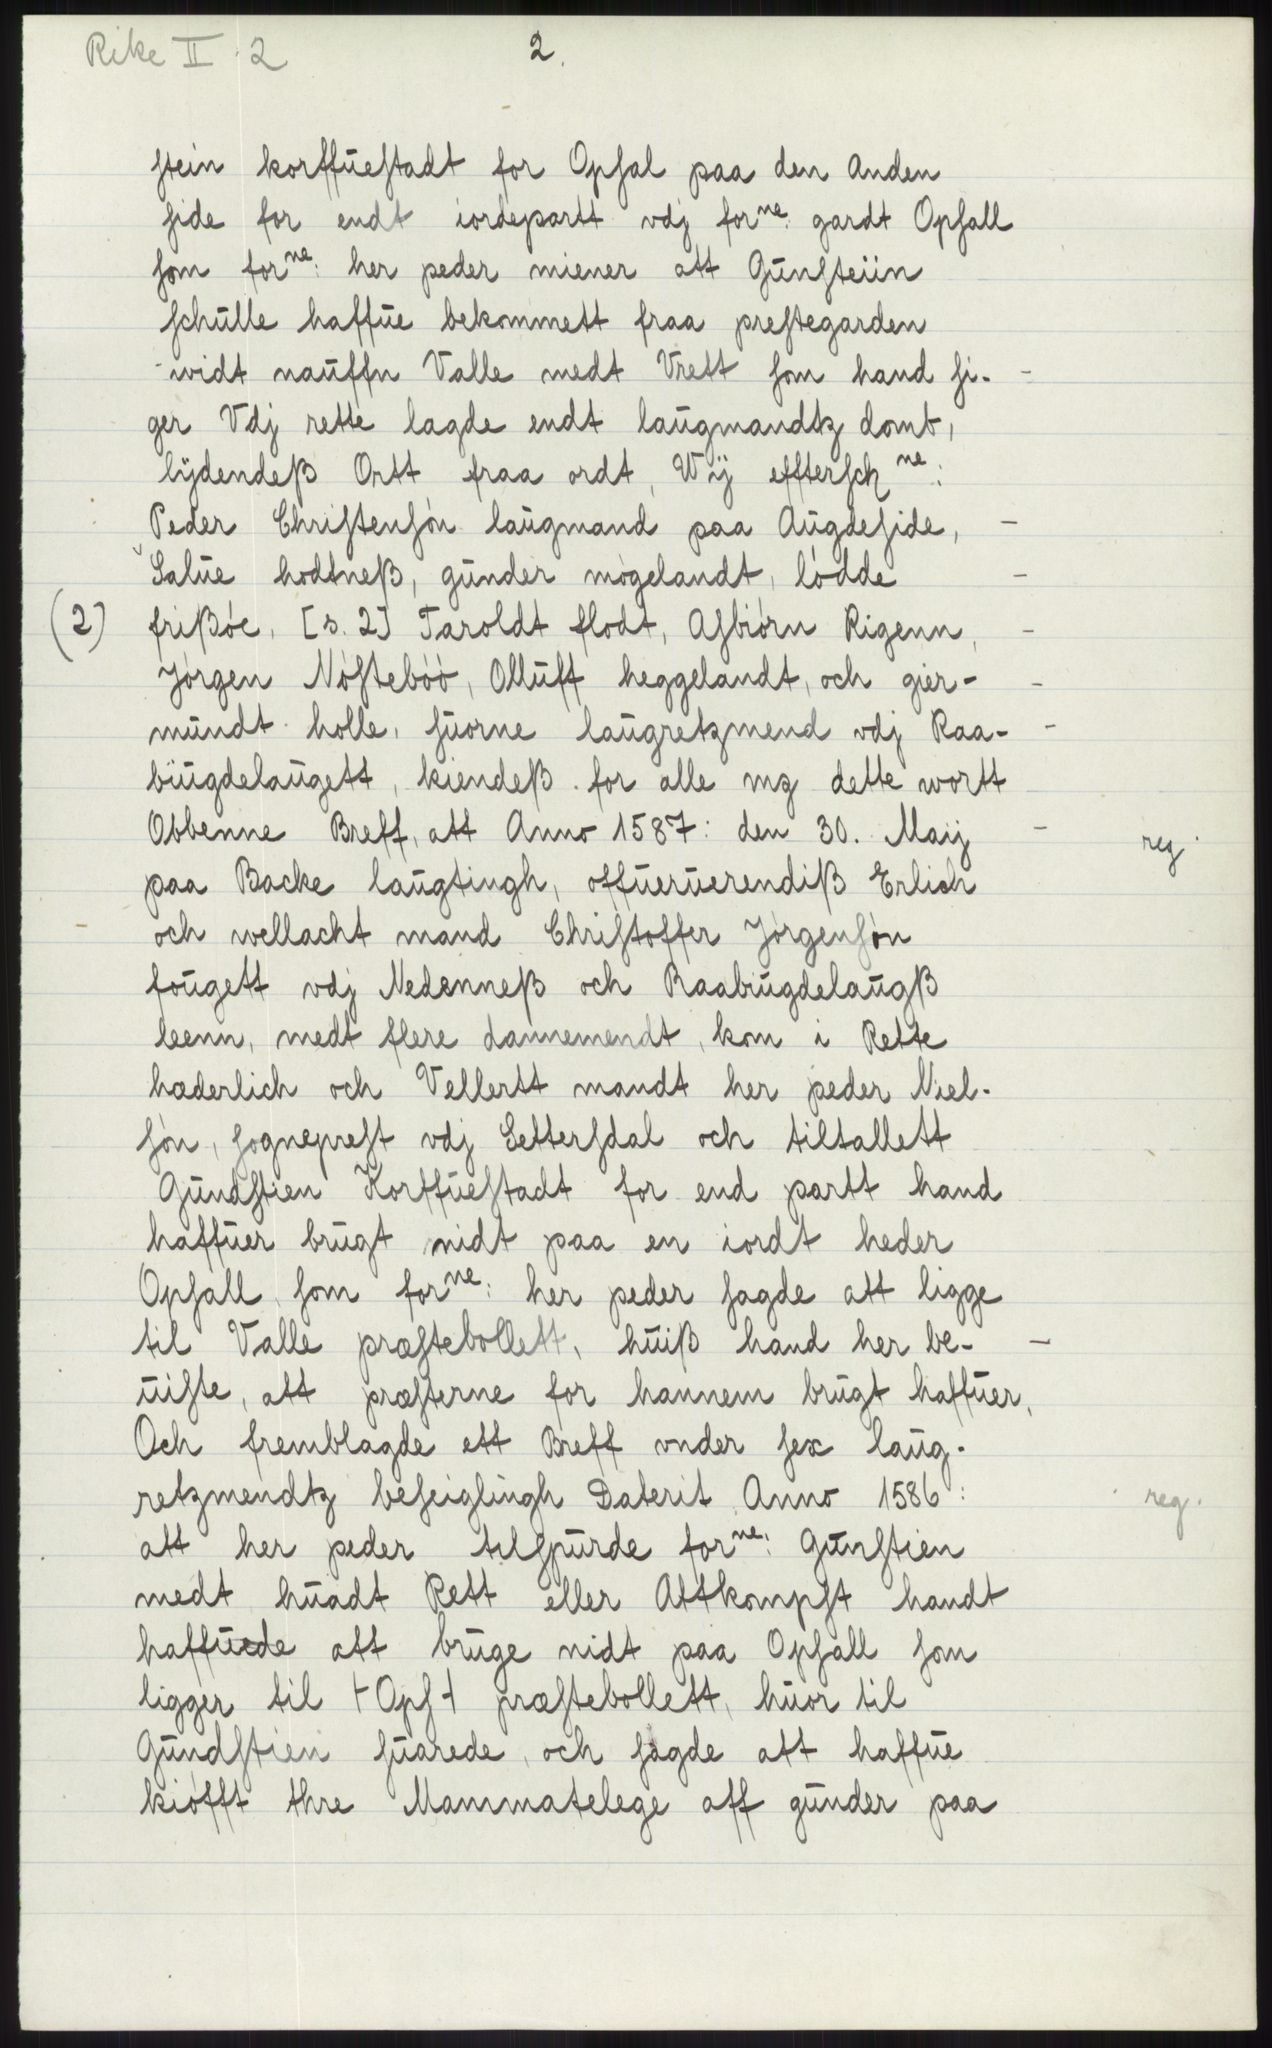 Rike II 2
2.
stein korffuestadt for Opsal paa den anden
side for endt iordepartt vdj forne: gardt Opsall
som forne: her peder miener att Gunsteiin
schulle haffue bekommett fraa prestegarden
widt nauffn Valle medt Vrett som hand si-
ger Vdj rette lagde endt laugmandtz domb,
lÿdendeß Ortt fraa ordt, Wÿ effterschne:
Peder Christensón laugmand paa Augdeside,
Salue hodtneß, gunder mógelandt, lódde
(2) frißóe, [s. 2] Taroldt flodt, Asbiórn Rigenn,
Jórgen Nóstebóó, Olluff heggelandt, och gier-
mundt holle, suorne laugretzmend vdj Raa-
bÿugdelaugett, kiendeß for alle mz dette wortt
Obbenne Breff, att Anno 1587: den 30. Maij
reg.
paa Backe laugtingh, offueruerendiß Erlich
och wellacht mand Christoffer Jórgensón
fougett vdj Nedenneß och Raabiugdelaugß
leenn, medt flere dannemendt, kom i Rette
hæderlich och Vellertt mandt her peder Niel-
són, sogneprest vdj Settersdal och tiltallett
Gundstien Korffuestadt for end partt hand
haffuer brugt nidt paa en iordt heder
Opsall, som forne: her peder sagde att ligge
til Valle præstebollett, huiß hand her be-
uiste, att præsterne for hannem brugt haffuer,
Och fremblagde ett Breff vnder sex laug-
retzmendtz beseiglingh Daterit Anno 1586:
reg.
att her peder tilspurde forne: Gunstien
medt huadt Rett eller Attkompst handt
haffuede att bruge nidt paa Opsall som
ligger til ⊢Ops⊣ præstebollett, huor til
Gundstien suarede, och sagde att haffue
kiófft thre Mammatelege aff gunder paa